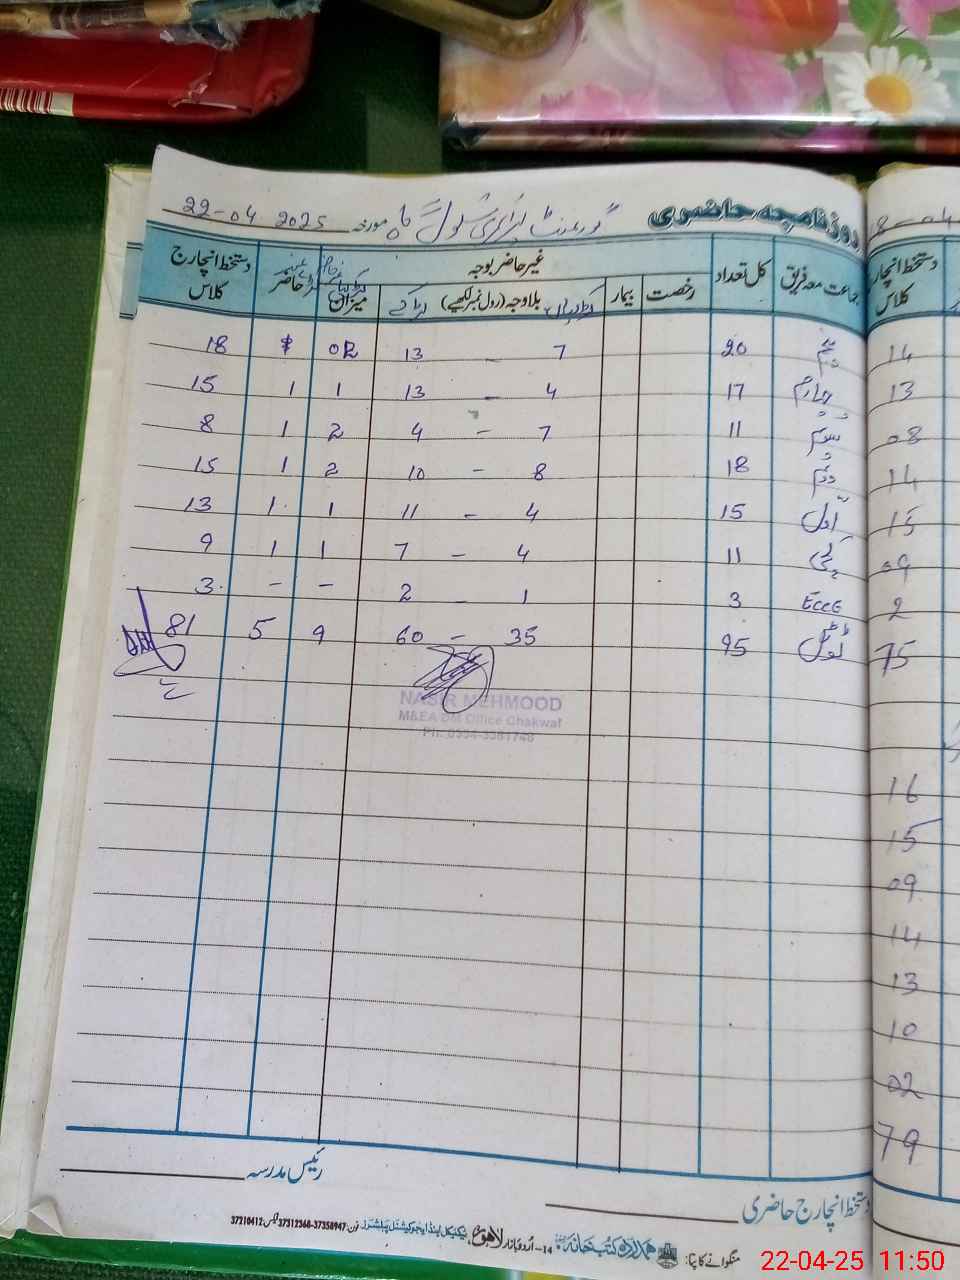 روزنامچہ حاضری گورنمنٹ پرائمری سکول مورخہ 22-04-2025
جماعت معہ فریق کل تعداد غیر حاضر بوجہ حاضر دستخط انچارج کلاس
رخصت بیمار لڑکیاں بلاوجہ (رول نمبر لکھیے) لڑکے میزان
پنجم 20 7 – 13 02 18
چہارم 17 4 – 13 1 1 15
سوئم 11 7 – 4 2 1 8
دوئم 18 8 – 10 2 1 15
اول 15 4 – 11 1 1 13
پکی 11 4 – 7 1 1 9
ECCE 3 1 – 2 – – 3
ٹوٹل 95 35 – 60 9 5 81
NASIR MEHMOOD
M&EA DM Office Chakwal
رئیس مدرسہ
دستخط انچارج حاضری
منگوانے کا پتا: ہمدرد کتب خانہ 14- اردو بازار لاہور، ٹیکنیکل اینڈ ایجوکیشنل پبلشرز فون: 37358947-37312368 فیکس: 37210412
8-04
دستخط انچارج کلاس
14
13
08
14
15
09
2
75
16
15
09
14
13
10
02
79
22-04-25 11:50